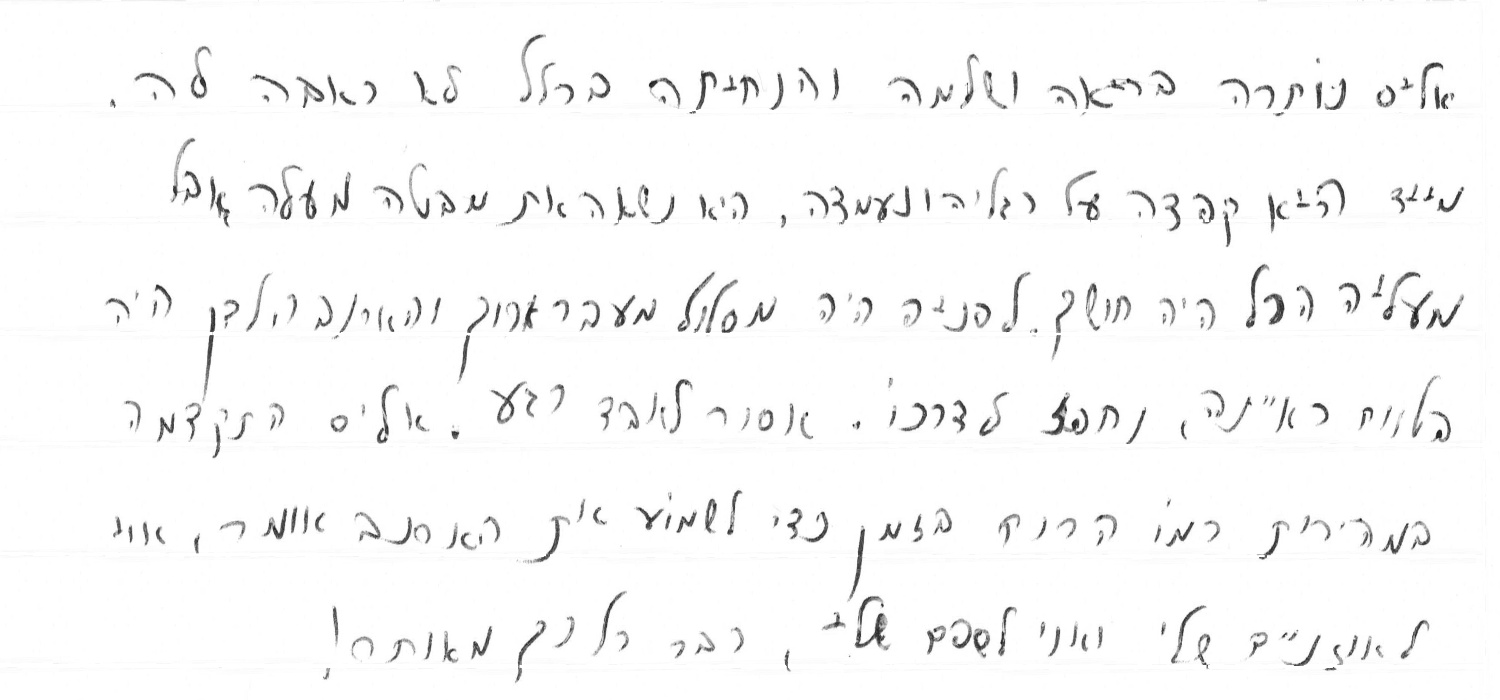 אליס נותרה בריאה ושלמה והנחיתה בכלל לא כאבה לה.
מייד היא קפצה על רגליה ונעמדה, היא נשאה את מבטה מעלה אבל
מעליה הכל היה חושך. לפניה היה מסלול מעבר ארוך והארנב הלבן היה
בטווח ראייתה, נחפז לדרכו. אסור לאבד רגע. אליס התקדמה
במהירות כמו הרוח בזמן כדי לשמוע את הארנב אוומר, אוי
לאוזניים שלי ואוי לשפם שלי, כבר כל כך מאוחר!